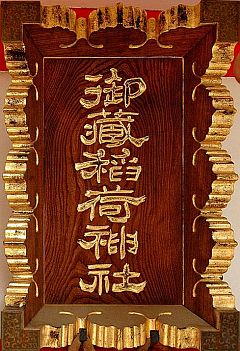 御藏稻荷神社